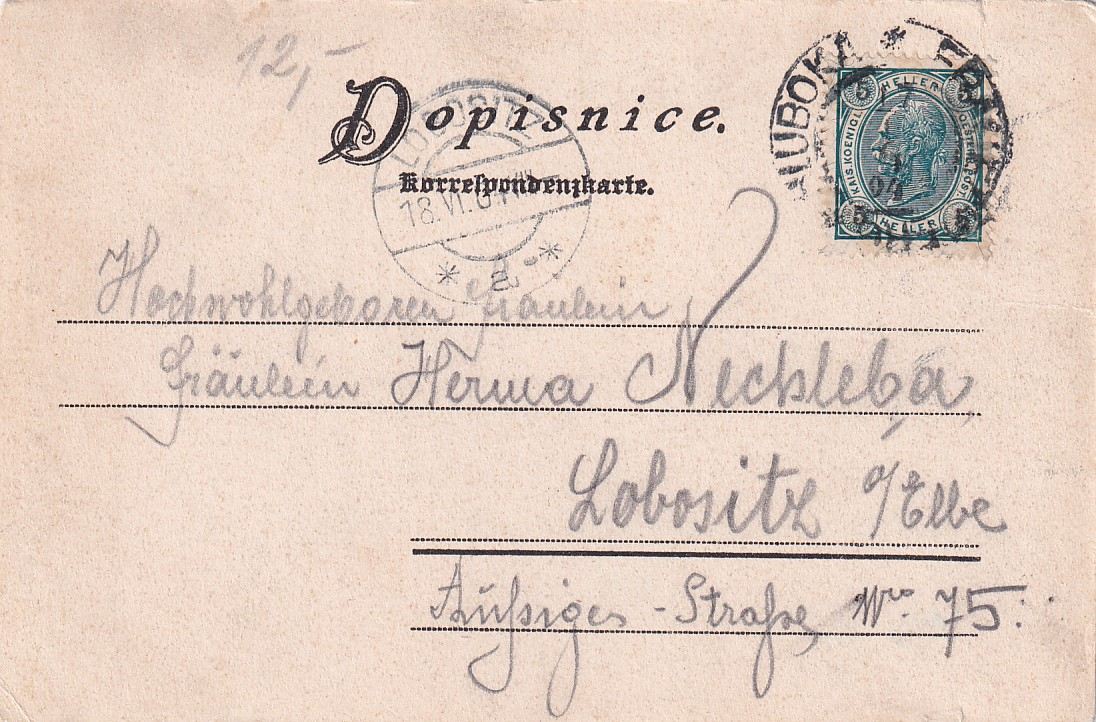 12,-
Dopisnice.
Korrespondenzkarte.
LOBOSITZ
18.VI.04
* a *
HLUBOKÁ *
KAIS. KOENIGL. OESTERR. POST
5 HELLER 5
5 HELLER 5
Hochwohlgeboren Fräulein
Fräulein Herma Nechleba
Lobositz a/Elbe
Außiger-Straße, Nro 75.